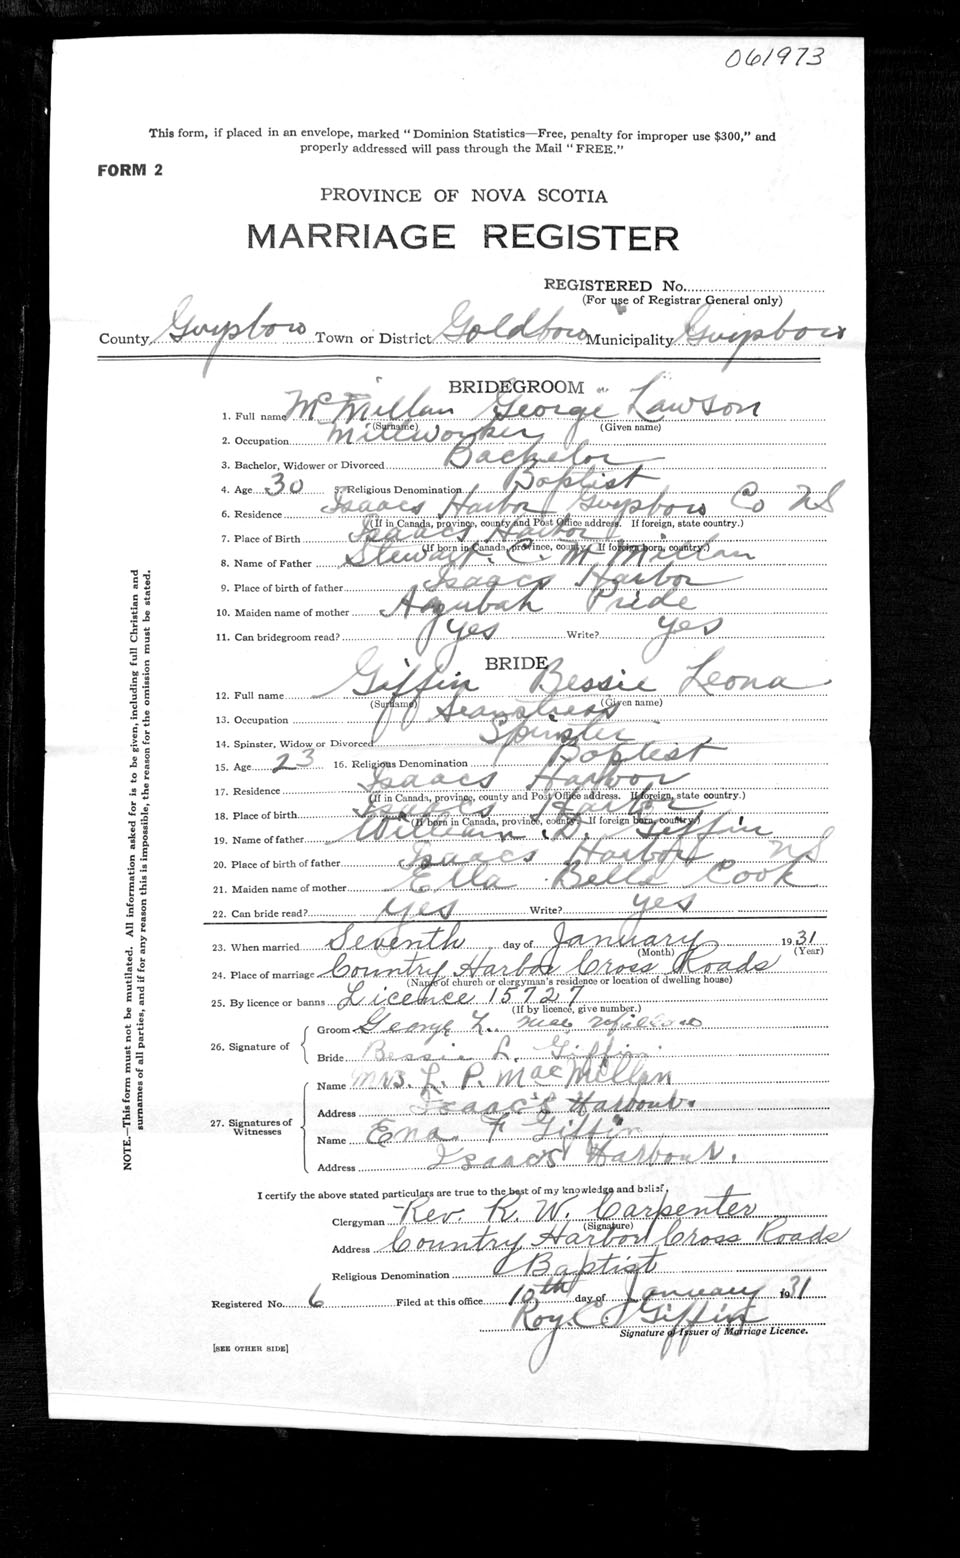 061973
This form, if placed in an envelope, marked "Dominion Statistics—Free, penalty for improper use $300," and
properly addressed will pass through the Mail "FREE."
FORM 2
PROVINCE OF NOVA SCOTIA
MARRIAGE REGISTER
REGISTERED No.
(For use of Registrar General only)
County Guysboro Town or District Goldboro Municipality Guysboro
BRIDEGROOM
1. Full name McMillan George Lawson
(Surname) (Given name)
2. Occupation Millworker
3. Bachelor, Widower or Divorced Bachelor
4. Age 30 5. Religious Denomination Baptist
6. Residence Isaacs Harbor Guysboro Co NS
(If in Canada, province, county and Post Office address. If foreign, state country.)
7. Place of Birth Isaacs Harbor
(If born in Canada, province, county. If foreign born, country.)
8. Name of Father Stewart C. McMillan
9. Place of birth of father Isaacs Harbor
10. Maiden name of mother Azubah Pride
11. Can bridegroom read? yes Write? yes
BRIDE
12. Full name Giffin Bessie Leona
(Surname) (Given name)
13. Occupation Seamstress
14. Spinster, Widow or Divorced Spinster
15. Age 23 16. Religious Denomination Baptist
17. Residence Isaacs Harbor
(If in Canada, province, county and Post Office address. If foreign, state country.)
18. Place of birth Isaacs Harbor
(If born in Canada, province, county. If foreign born, country.)
19. Name of father William D. Giffin
20. Place of birth of father Isaacs Harbor NS
21. Maiden name of mother Ella Bella Cook
22. Can bride read? yes Write? yes
23. When married Seventh day of January 1931
(Month) (Year)
24. Place of marriage Country Harbor Cross Roads
(Name of church or clergyman's residence or location of dwelling house)
25. By licence or banns Licence 15727
(If by licence, give number.)
26. Signature of
Groom George L. MacMillan
Bride Bessie L. Giffin
27. Signatures of Witnesses
Name Mrs. L. P. MacMillan
Address Isaac's Harbour.
Name Ena F Giffin
Address Isaacs Harbour.
I certify the above stated particulars are true to the best of my knowledge and belief.
Clergyman Rev. R. W. Carpenter
(Signature)
Address Country Harbor Cross Roads
Religious Denomination Baptist
Registered No. 6 Filed at this office 10th day of January 1931
Roy C. Giffin
Signature of Issuer of Marriage Licence.
[SEE OTHER SIDE]
NOTE.—This form must not be mutilated. All information asked for is to be given, including full Christian and
surnames of all parties, and if for any reason this is impossible, the reason for the omission must be stated.